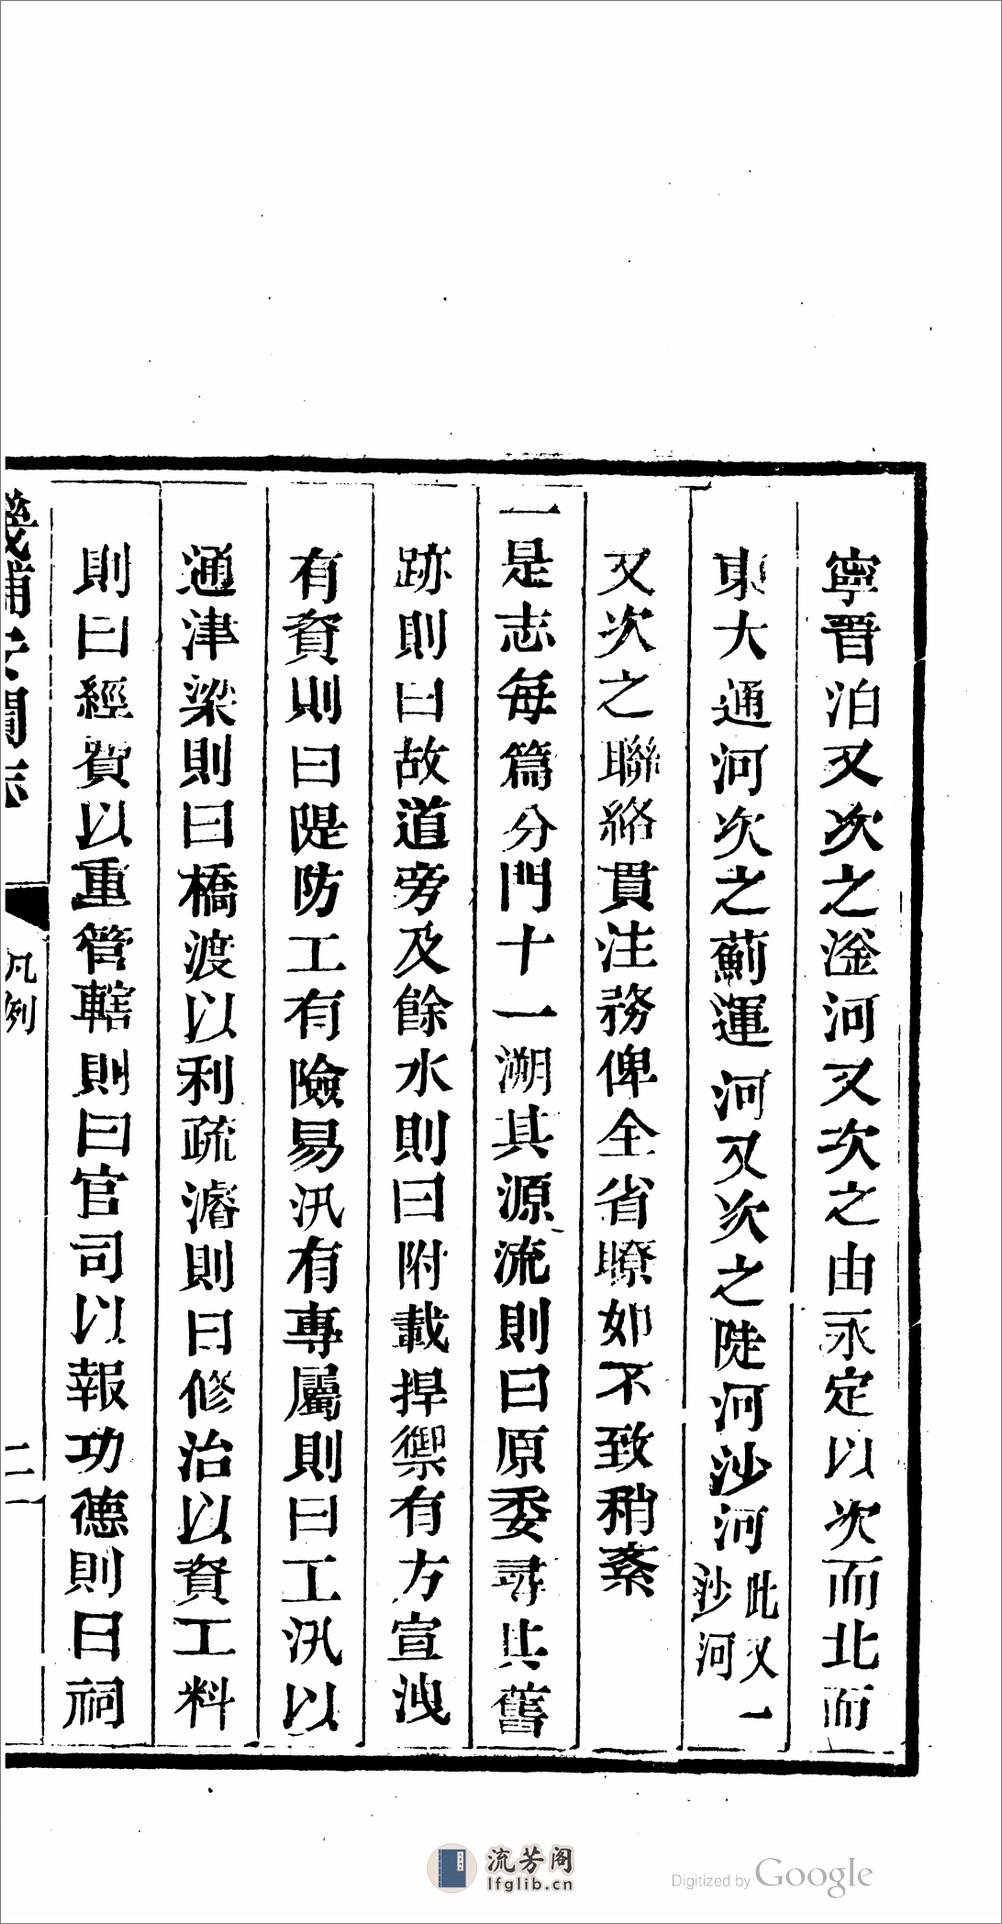 寧晉泊又次之滏河又次之由永定以次而北而
東大通河次之薊運河又次之陡河沙河此又一沙河
又次之聯絡貫注務俾全省瞭如不致稍紊
一是志每篇分門十一溯其源流則曰原委尋其舊
跡則曰故道旁及餘水則曰附載捍禦有方宣洩
有資則曰隄防工有險易汛有專屬則曰工汛以
通津梁則曰橋渡以利疏濬則曰修治以資工料
則曰經費以重管轄則曰官司以報功德則曰祠
畿輔安瀾志
凡例
二
流芳阁
lfglib.cn
Digitized by Google